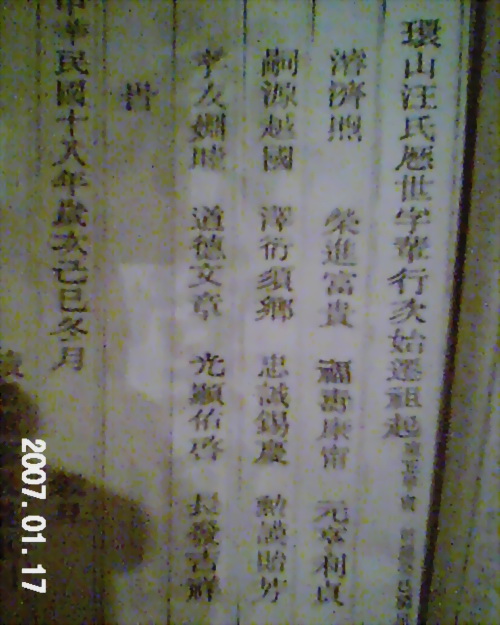 環山汪氏歷世字輩行次始遷祖起
榮進富貴 福壽康甯 元亨利貞
嗣源越國 澤衍須鄉 忠誠錫慶 勳謨貽芳
孝友婣睦 道德文章 光顯佑啓 長發吉祥
中華民國十八年歲次己巳冬月
2007.01.17